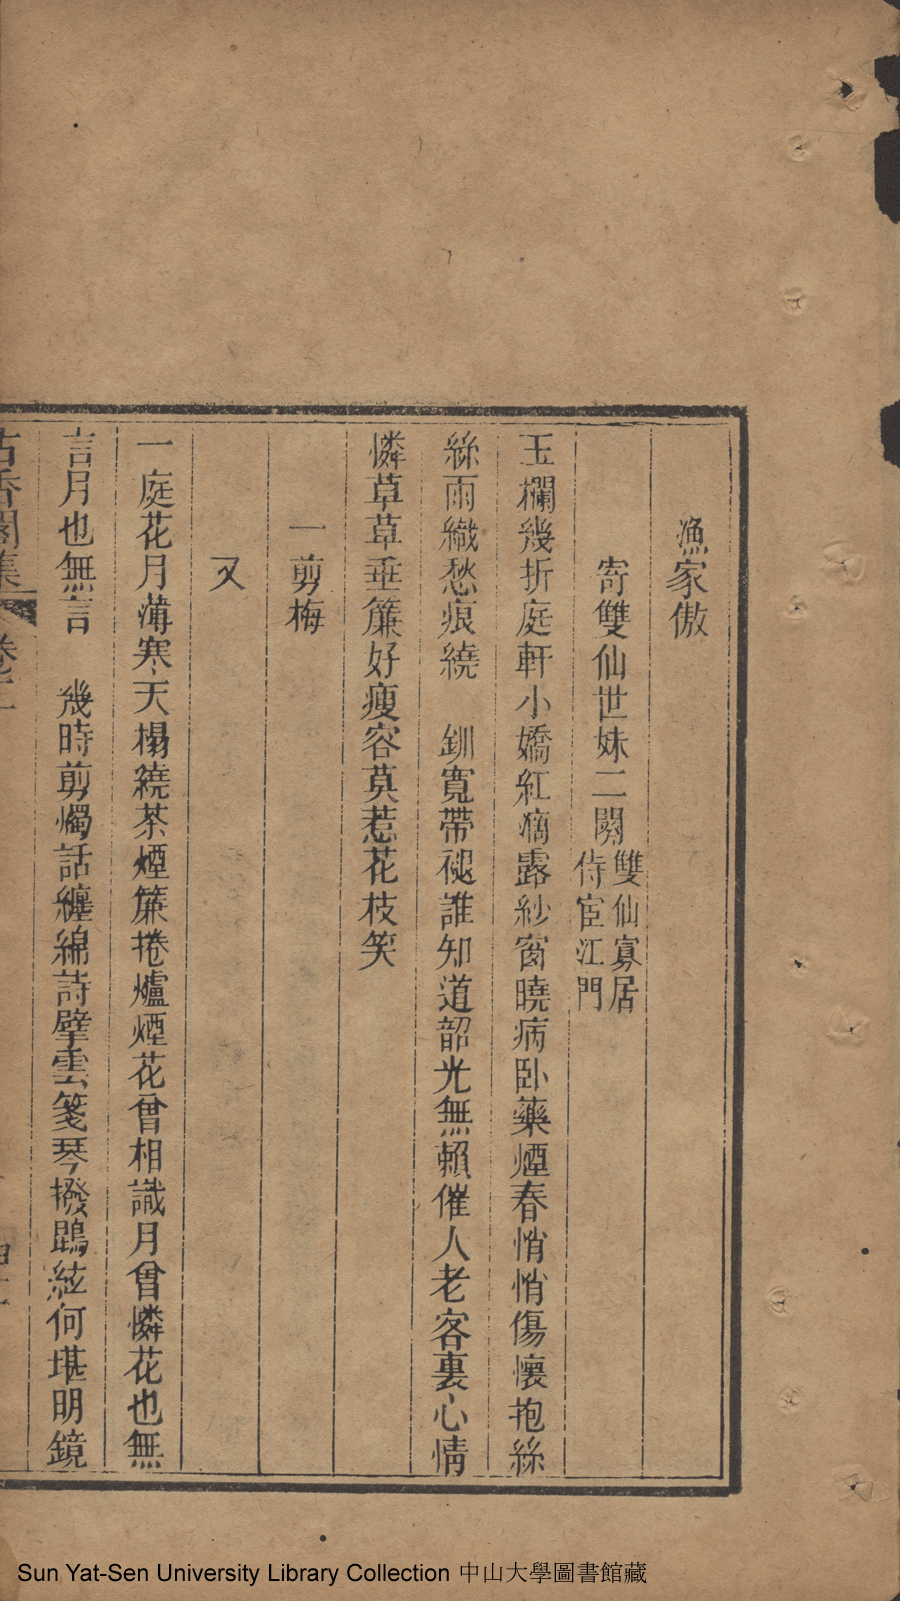 漁家傲
寄雙仙世妹二闋 雙仙寡居
侍宦江門
玉欄幾折庭軒小嬌紅滴露紗窗曉病卧藥煙春悄悄傷懷抱絲
絲雨織愁痕繞　釧寬帶褪誰知道韶光無賴催人老客裏心情
憐草草垂簾好瘦容莫惹花枝笑
一剪梅
又
一庭花月薄寒天榻繞茶煙簾捲爐煙花曾相識月曾憐花也無
言月也無言　幾時剪燭話纏綿詩擘雲箋琴撥鵾絃何堪明鏡
古香閣集
Sun Yat-Sen University Library Collection 中山大學圖書館藏